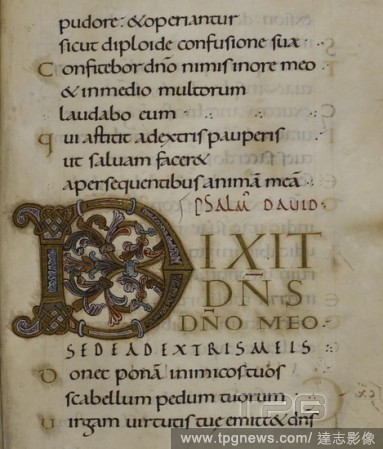 pudore: &operiantur
sicut diploide confusione sua
Confitebor dño nimis inore meo
& inmedio multorum
laudabo eum
qui astitit adextris pauperis
ut saluam facer&
apersequentibus animã meã
PSALM DAVID
DIXIT
DÑS
DÑO MEO
SEDEADEXTRISMEIS
Donec ponã inimicos tuos
scabellum pedum tuorum
Uirgam uirtutis tue emitt& dñs
TPG
www.tpgnews.com/達志影像